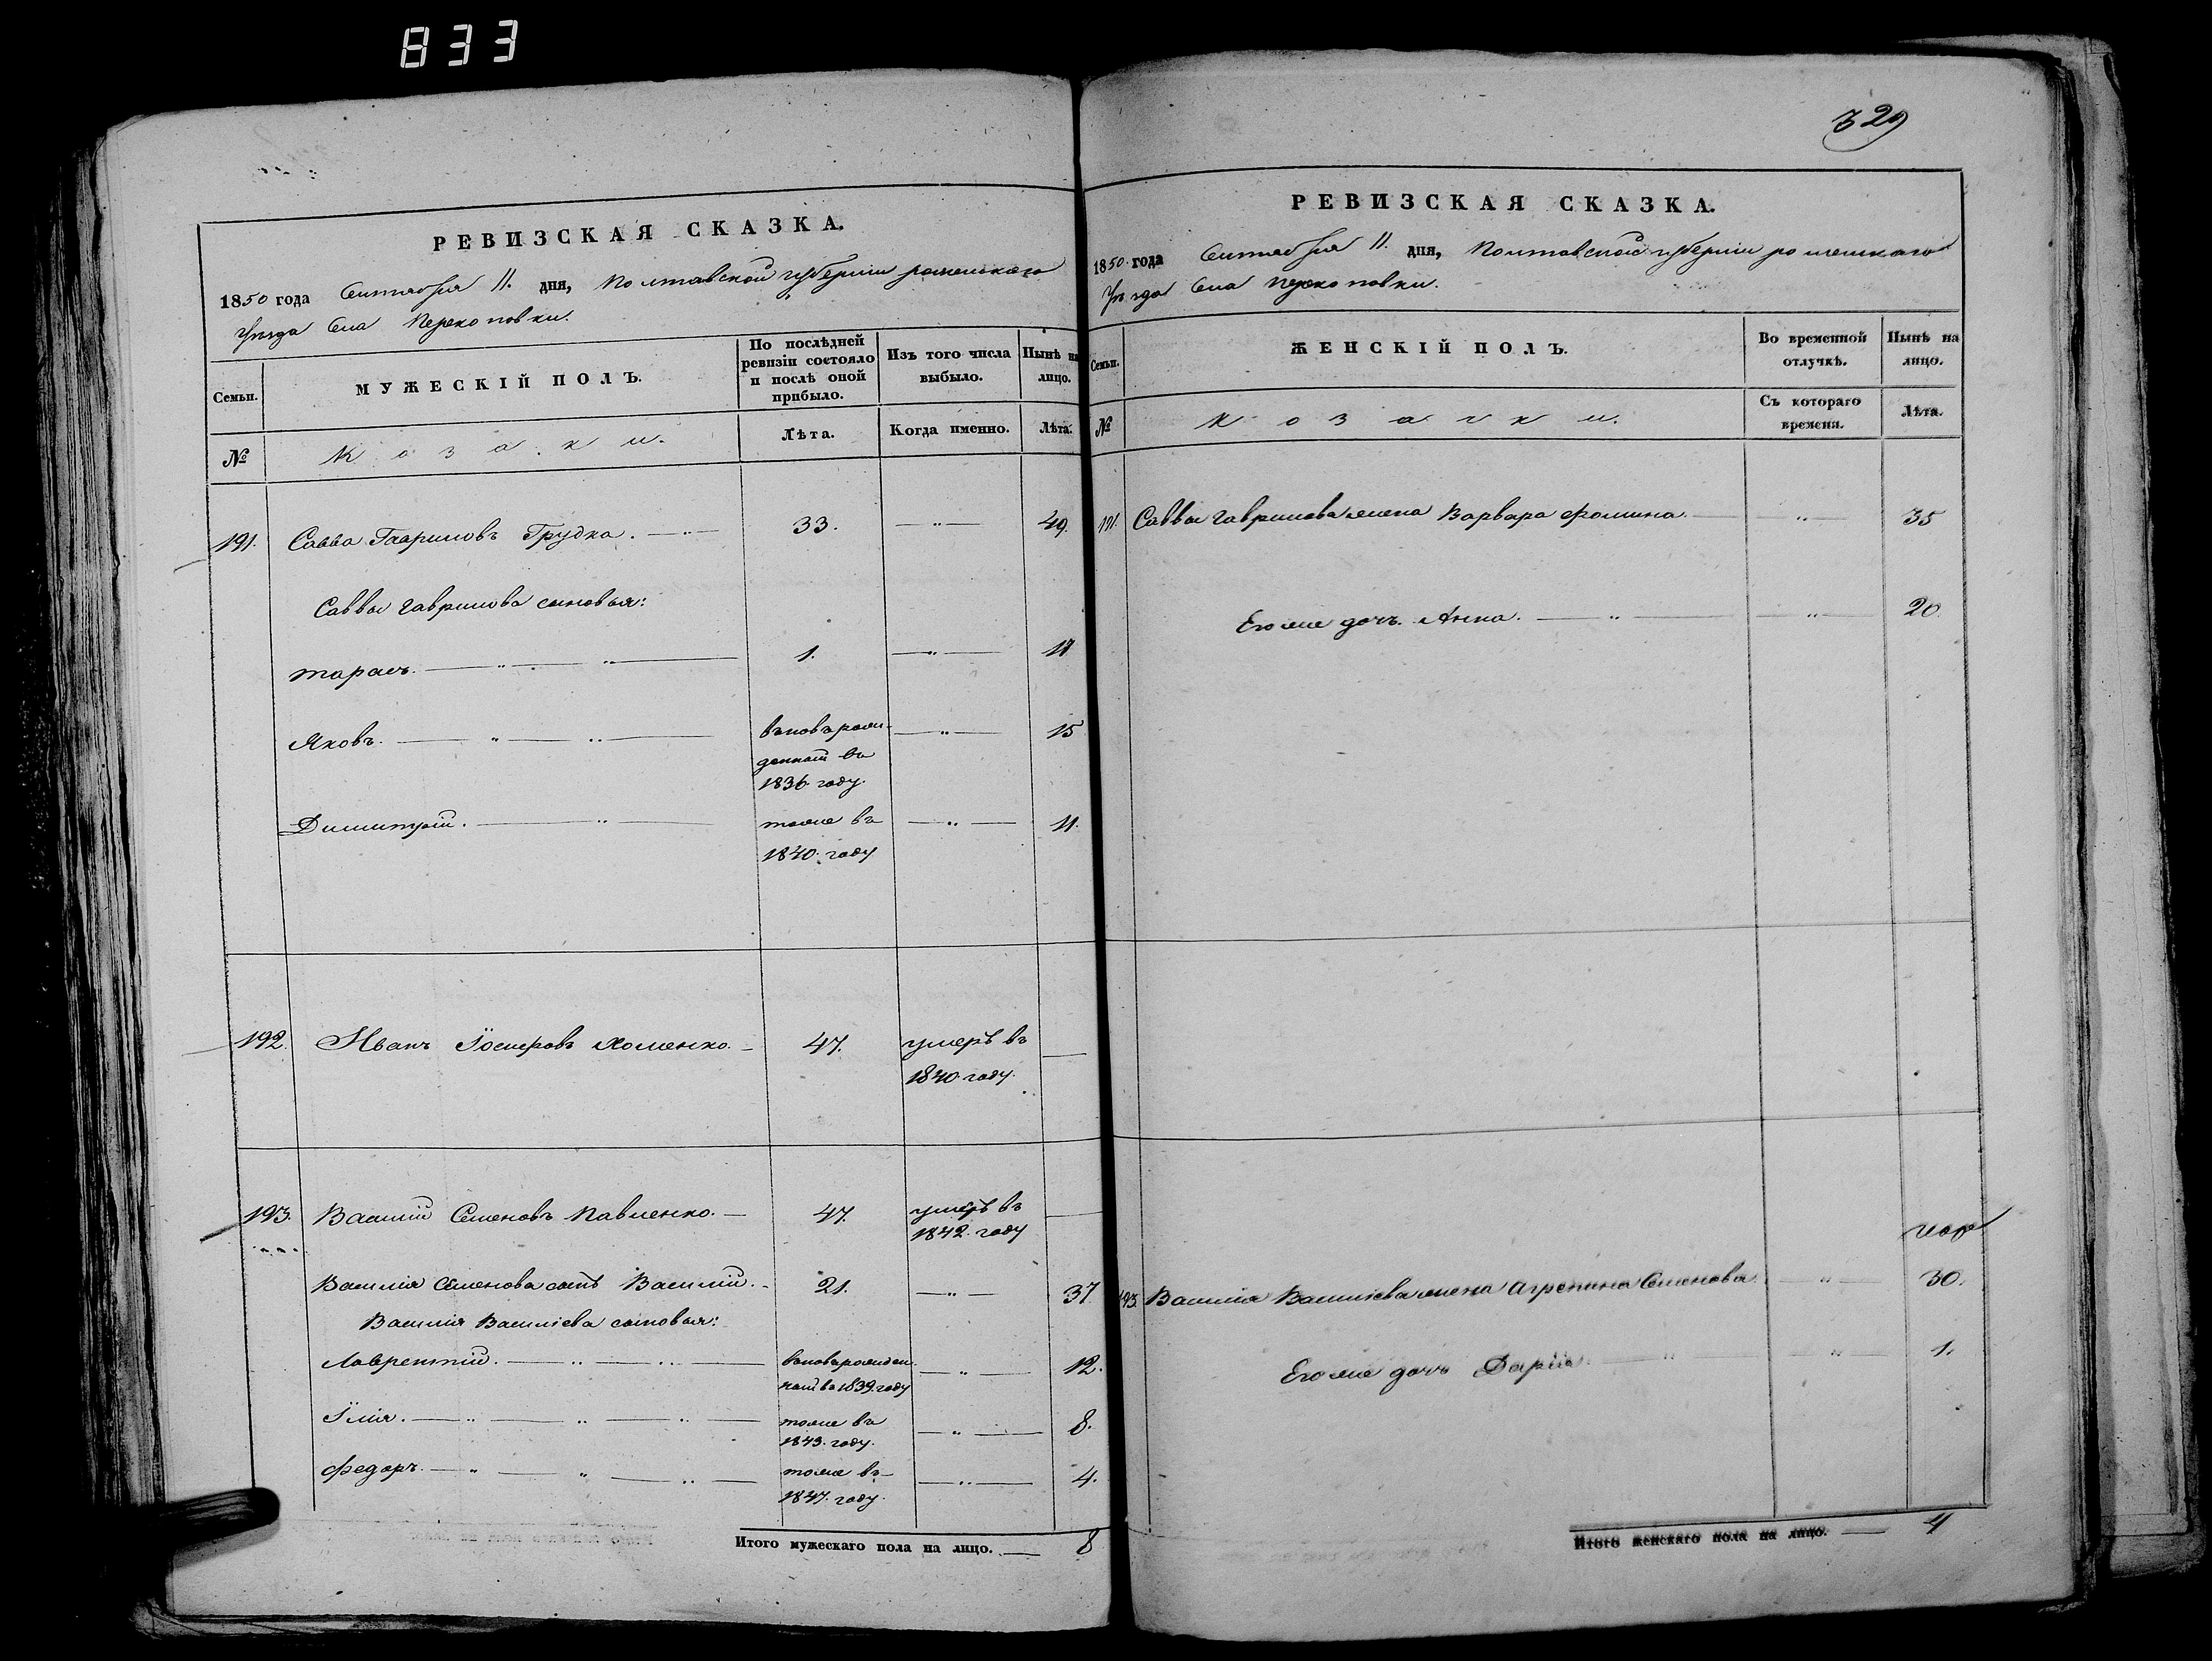 833
329
РЕВИЗСКАЯ СКАЗКА.
1850 года Сентября 11. дня, Полтавской губерніи роменскаго
уѣзда села Перекоповки.
Семьи.
МУЖЕСКІЙ ПОЛЪ.
По послѣдней
ревизіи состояло
и послѣ оной
прибыло.
Изъ того числа
выбыло.
Нынѣ на
лицо.
№
Козаки.
Лѣта.
Когда именно.
Лѣта.
191. Савва Гавриловъ Грудка. 33. 49.
Саввы Гаврилова сыновья:
Тарасъ. 1. 17
Яковъ. вновьрож- 15
денный въ
1836 году.
Димитрій. тоже въ 11.
1840. году
192. Иванъ Іосифовъ Хоменко. 47. умеръ въ
1840 году.
193. Василій Семеновъ Павленко. 47. умеръ въ
1842. году
Василія Семенова сынъ Василій. 21. 37
Василія Василіева сыновья:
Лаврентій. вновьрожден- 12.
ный въ 1839. году
Ілія. тоже въ 8.
1843. году.
Федоръ. тоже въ 4.
1847. году.
Итого мужескаго пола на лицо. 8
РЕВИЗСКАЯ СКАЗКА.
1850 года Сентября 11. дня, Полтавской губерніи роменскаго
уѣзда села Перекоповки.
Семьи.
ЖЕНСКІЙ ПОЛЪ.
Во временной
отлучкѣ.
Нынѣ на
лицо.
№
Козачки.
Съ котораго
времени.
Лѣта.
191. Саввы Гаврилова жена Варвара Фомина. 35
Его же дочь Анна. 20.
193. Василія Василіева жена Агрепина Семенова 30.
Его же дочь Дарія 1.
Итого женскаго пола на лицо. 4